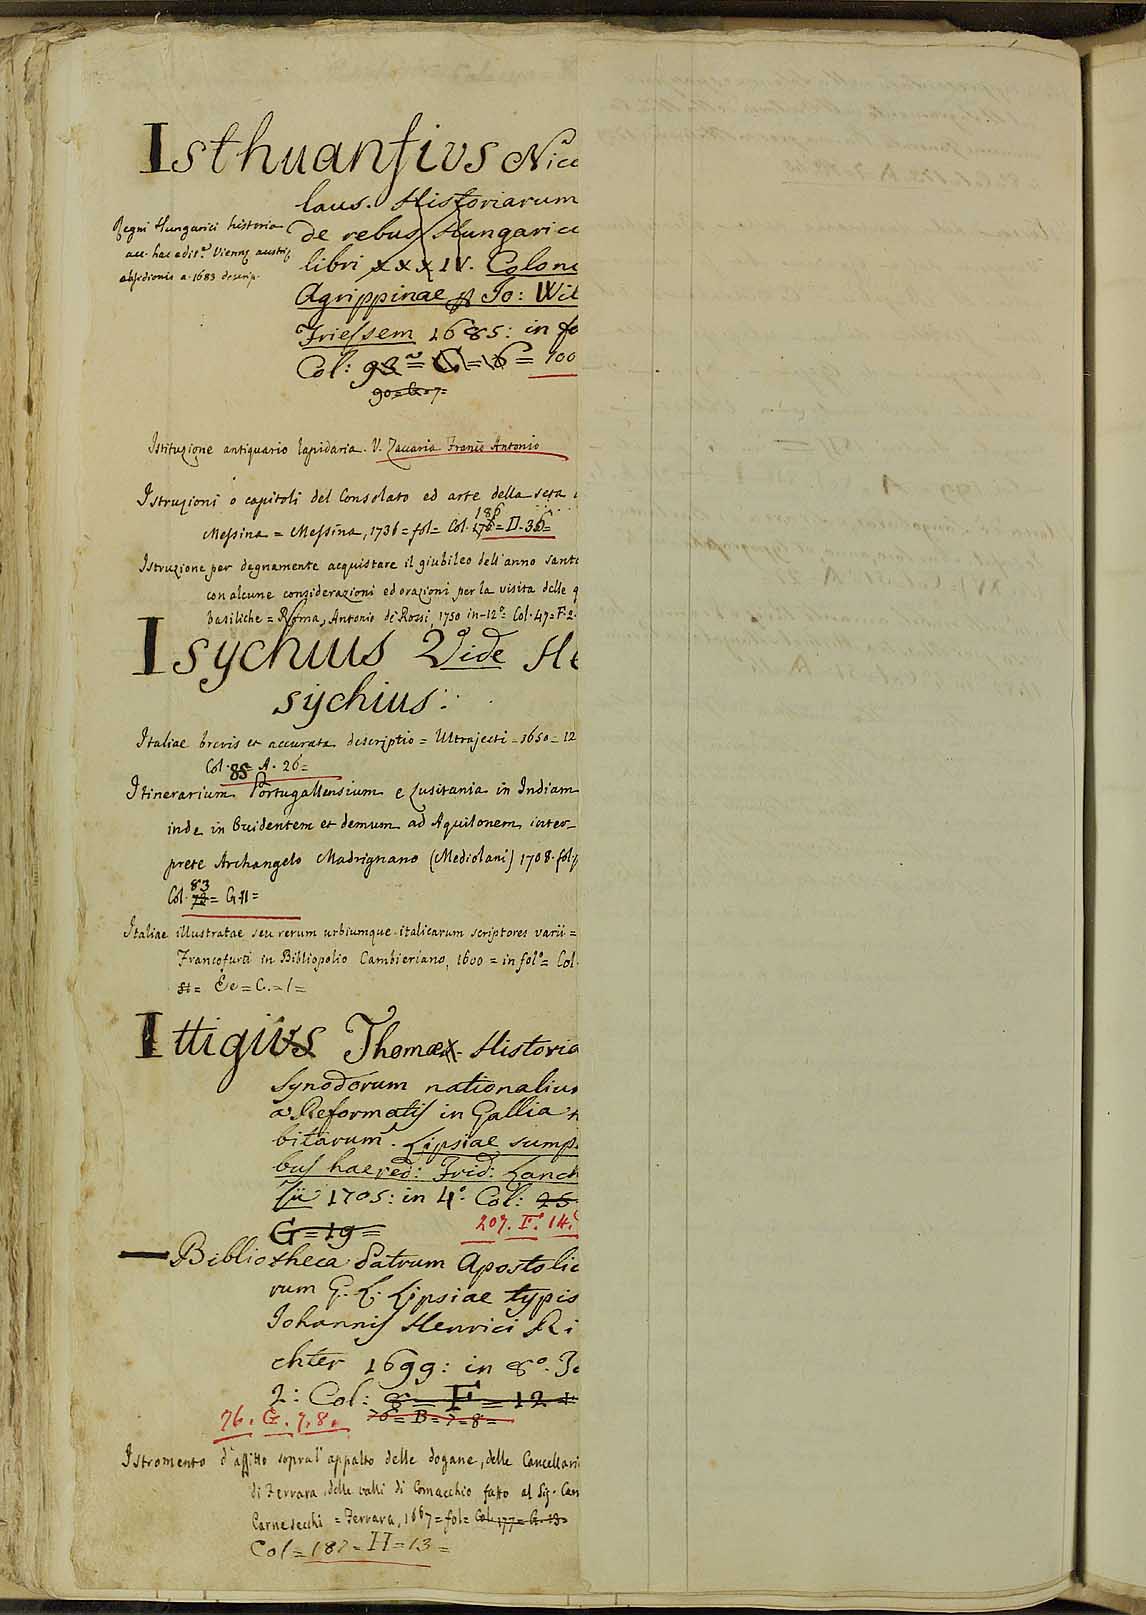 Isthuansius Nico
laus. Historiarum
de rebus Hungaric
Regni Hungarici historia
acc. hac edit.e Viennę austrię
absedionis a. 1683 descrip.
libri XXXIV. Colon
Agrippinae Jo: Wil
Friessem 1685: in fo
Col: 93 = G = 6 = 100
90 = G = 7 =
Istituzione antiquario lapidaria. V. Zaccaria Franc Antonio
Istruzioni o capitoli del Consolato ed arte della seta
186
Messina = Messina, 1736 = fol = Col. 178 = D. 36 =
Istruzione per degnamente acquistare il giubileo dell'anno santo
con alcune considerazioni ed orazioni per la visita delle q
Basiliche = Roma, Antonio de Rossi, 1750 in-12° Col. 47 = F. 2.
Isychius Vide He
sychius:
Italiae brevis et accurata descriptio = Ultrajecti = 1650 = 12
Col. 85 = A. 26 =
Itinerarium Portugallensium e Lusitania in Indiam
inde in Occidentem et demum ad Aquilonem, inter-
prete Archangelo Madrignano (Mediolani) 1708. fol.
83
Col. 72 = G. 11 =
Italiae illustratae seu rerum urbiumque italicarum scriptores varii =
Francofurti in Bibliopolio Cambieriano, 1600 = in fol° = Col.
Ee = C. = 1 =
Ittigius Thomas. Historia
synodorum nationaliu
a Reformatis in Gallia
bitarum. Lipsiae sump
bus haered: Frid: Lanck
sii 1705: in 4°. Col: 25
G = 19 =
207. F. 14.
— Bibliotheca Patrum Apostolic
rum G. L. Lipsiae typis
Johannis Henrici Ri
chter 1699: in 8°. To
2: Col: 8 = F = 12
76. G. 7. 8. 76 = B = 7 = 8 =
Istromento d'affitto sopra l'appalto delle dogane, delle Cancellari
di Ferrara, delle valli di Comacchio fatto al Sig. Can
Carnesecchi = Ferrara, 1667 = fol = Col. 177 = G. 13 =
Col = 187 = H = 13 =